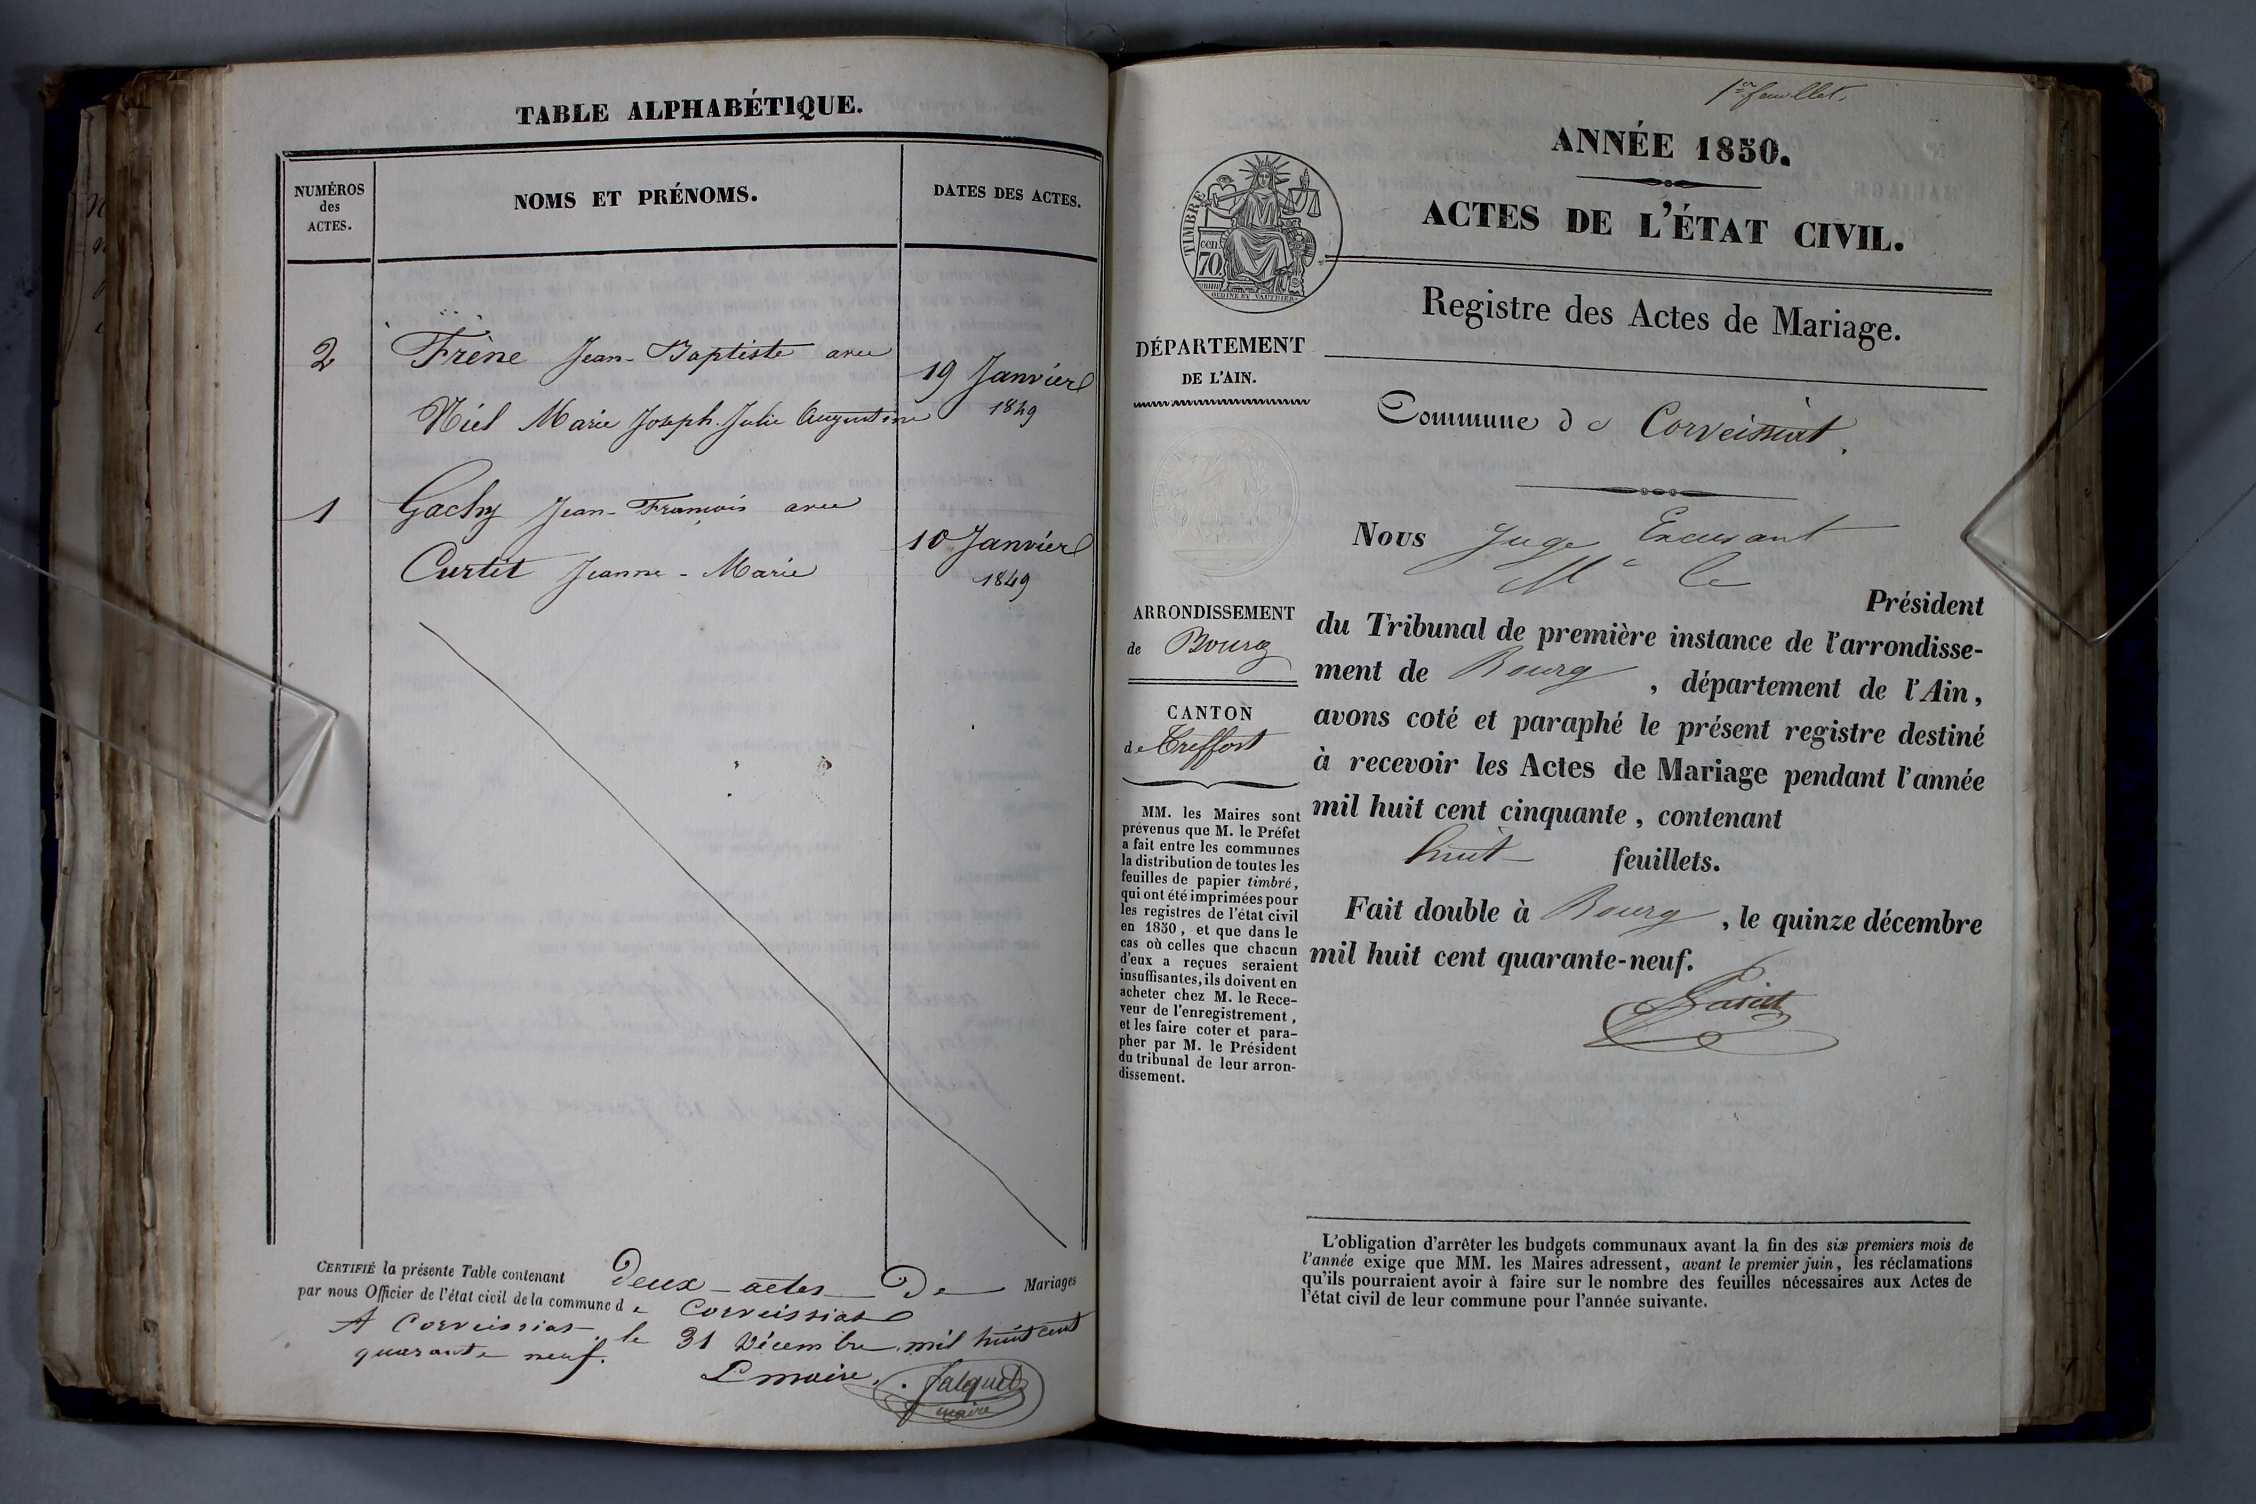 TABLE ALPHABÉTIQUE.
NUMÉROS
des
ACTES.
NOMS ET PRÉNOMS.
DATES DES ACTES.
2
Frène Jean-Baptiste avec
19 Janvier
Niel Marie Joseph. Julie Augustine
1849
1
Gachy Jean-François avec
10 Janvier
Curtit Jeanne-Marie
1849
CERTIFIÉ la présente Table contenant Deux actes De Mariages
par nous Officier de l'état civil de la commune de Corveissiat
A Corveissiat le 31 Décembre mil huit cent
quarante neuf.
Le maire, Falquet
maire
1er feuillet.
ANNÉE 1850.
ACTES DE L'ÉTAT CIVIL.
TIMBRE
70 cen
OUDINE ET VAUTHIER
Registre des Actes de Mariage.
DÉPARTEMENT
DE L'AIN.
Commune de Corveissiat.
Nous Juge Excusant
Mr le
Président
ARRONDISSEMENT
de Bourg
CANTON
de Treffort
du Tribunal de première instance de l'arrondisse-
ment de Bourg, département de l'Ain,
avons coté et paraphé le présent registre destiné
à recevoir les Actes de Mariage pendant l'année
mil huit cent cinquante, contenant
huit feuillets.
Fait double à Bourg, le quinze décembre
mil huit cent quarante-neuf.
MM. les Maires sont
prévenus que M. le Préfet
a fait entre les communes
la distribution de toutes les
feuilles de papier timbré,
qui ont été imprimées pour
les registres de l'état civil
en 1850, et que dans le
cas où celles que chacun
d'eux a reçues seraient
insuffisantes, ils doivent en
acheter chez M. le Rece-
veur de l'enregistrement,
et les faire coter et para-
pher par M. le Président
du tribunal de leur arron-
dissement.
L'obligation d'arrêter les budgets communaux avant la fin des six premiers mois de
l'année exige que MM. les Maires adressent, avant le premier juin, les réclamations
qu'ils pourraient avoir à faire sur le nombre des feuilles nécessaires aux Actes de
l'état civil de leur commune pour l'année suivante.